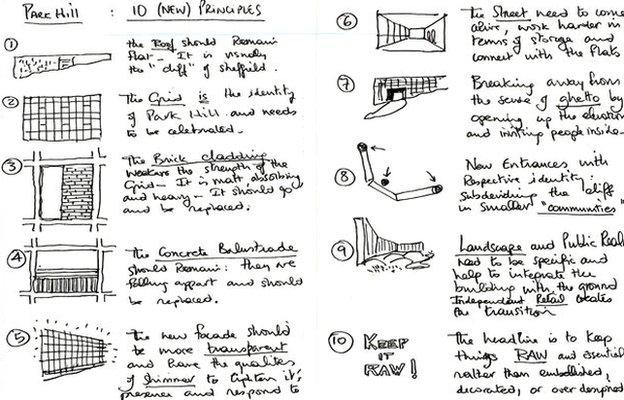 PARK HILL : 10 (NEW) PRINCIPLES
①
the Roof should Remain
flat - It is visually
the "cliff" of sheffield.
②
The Grid is the identity
of Park Hill and needs
to be celebrated.
③
The Brick cladding
weakens the strength of the
Grid - It is matt absorbing
and heavy - It should go
and be replaced.
④
The Concrete Balustrade
should Remain: they are
falling appart and should
be replaced.
⑤
The new facade should
be more transparent
and have the qualities
of shimmer to lighten it's
presence and respond to
⑥
The Street need to come
alive, work harder in
terms of storage and
connect with the flats
⑦
Breaking away from
the sense of ghetto by
opening up the
and inviting people inside.
⑧
New Entrances with
Respective identity:
Subdividing the cliff
in smaller "communities"
⑨
Landscape and Public
need to be specific and
help to integrate the
building with the ground
Independent Retail creates
the transition
⑩
KEEP
IT
RAW!
The headline is to keep
things RAW and essential
rather than embellished,
decorated, or over designed